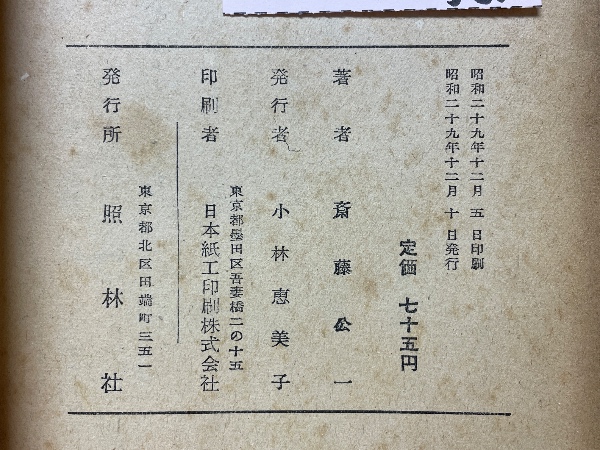 昭和二十九年十二月 五 日印刷
昭和二十九年十二月 十 日発行
定価 七十五円
著者 斎藤公一
発行者 小林恵美子
東京都墨田区吾妻橋二の十五
印刷者 日本紙工印刷株式会社
東京都北区田端町三五一
発行所 照林社